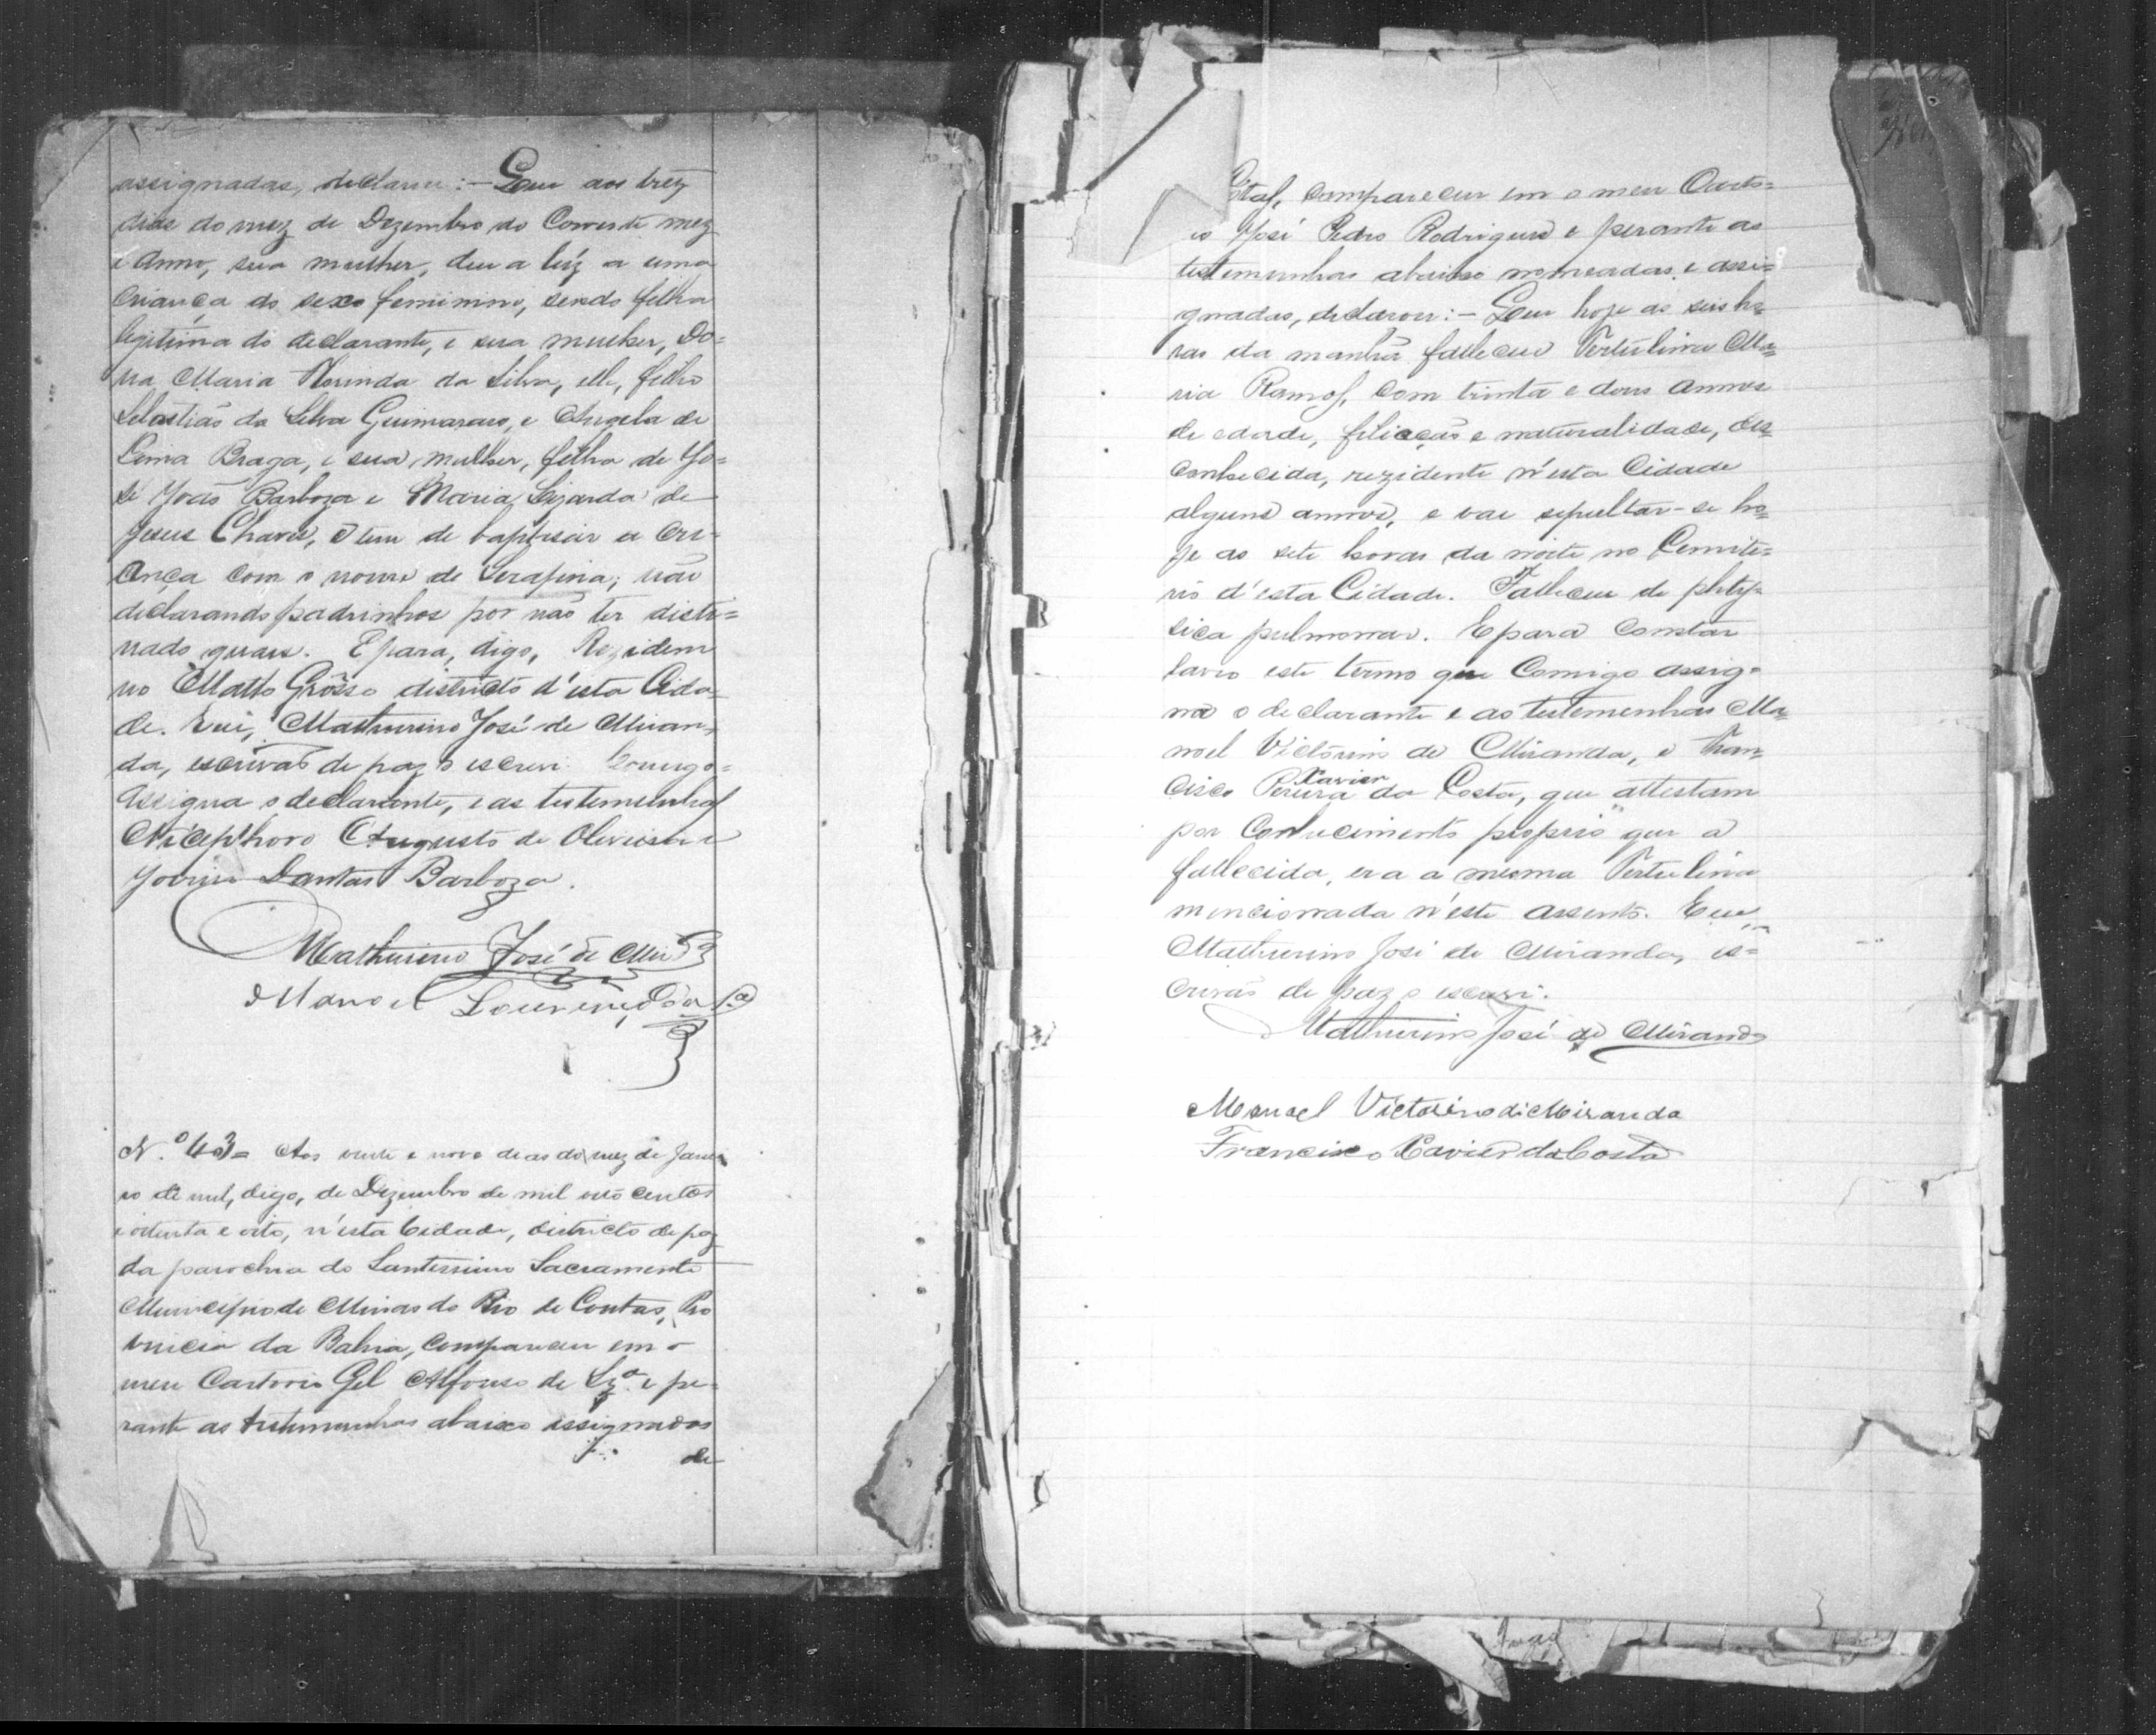 assignadas, declarou:- Que aos trez
dias do mez de Dezembro do Corrente mez
e Anno, sua mulher, deu a lúz a uma
Criança do sexo feminino, sendo filha
legitima do declarante, e sua mulher, Do-
na Maria Florinda da Silva, elle, filho
Sebastião da Silva Guimaraes, e Angela de
Lima Braga, e sua mulher, filha de Jo-
sé João Barboza e Maria Lizarda de
Jesus Chaves, e tem de baptisar a Cri-
ança com o nome de Serafina; não
declarando padrinhos por não ter disti-
nado quaes. E para, digo, Rezidem
no Matto Grosso districto d'esta Cida-
de. Eu, Mathurino José de Miran-
da, escrivão de paz o escrevi
Assigna o declarante, e as testemunhas
Nicephoro Augusto de Oliveira e
Jovino Dantas Barboza.
Mathurino José de Mir
Manoel Lourenço da Sa
N.º 43= Aos vinte e nove dias do mez de Janei
ro de mil, digo, de Dezembro de mil oito centos
e oitenta e oito, n'esta Cidade, districto de paz
da parochia do Santissimo Sacramento
Municipio de Minas do Rio de Contas, Pro
vincia da Bahia, compareceu em o
meu Cartorio Gel Affonso de Sz.ª e pe-
rante as testemunhas abaixo assignadas
de
compareceu em o meu Carto=
io José Pedro Rodrigues e perante as
testemunhas abaixo nomeadas e assi=
gnadas, declarou:- Que hoje as seis ho=
ras da manhã falleceu Vertulina Ma=
ria Ramos, com trinta e dous annos
de edade, filiação e naturalidade, des=
conhecida, rezidente n'esta Cidade
alguns annos, e vae sepultar-se ho=
je as sete horas da noite no Cemite=
rio d'esta Cidade. Falleceu de phty=
sica pulmonar. E para Constar
lavro este termo que Comigo assig=
na o declarante e as testemunhas Ma=
noel Victorino de Miranda, e Fran=
cisco Pereira Xavier da Costa, que attestam
por Conhecimento proprio que a
fallecida, era a mesma Vertulina
mencionada n'este assento. Eu,
Mathurino José de Miranda, es=
crivão de paz o escrevi.
Mathurino José de Miranda
Manoel Victorino di Miranda
Francisco Xavier da Costa